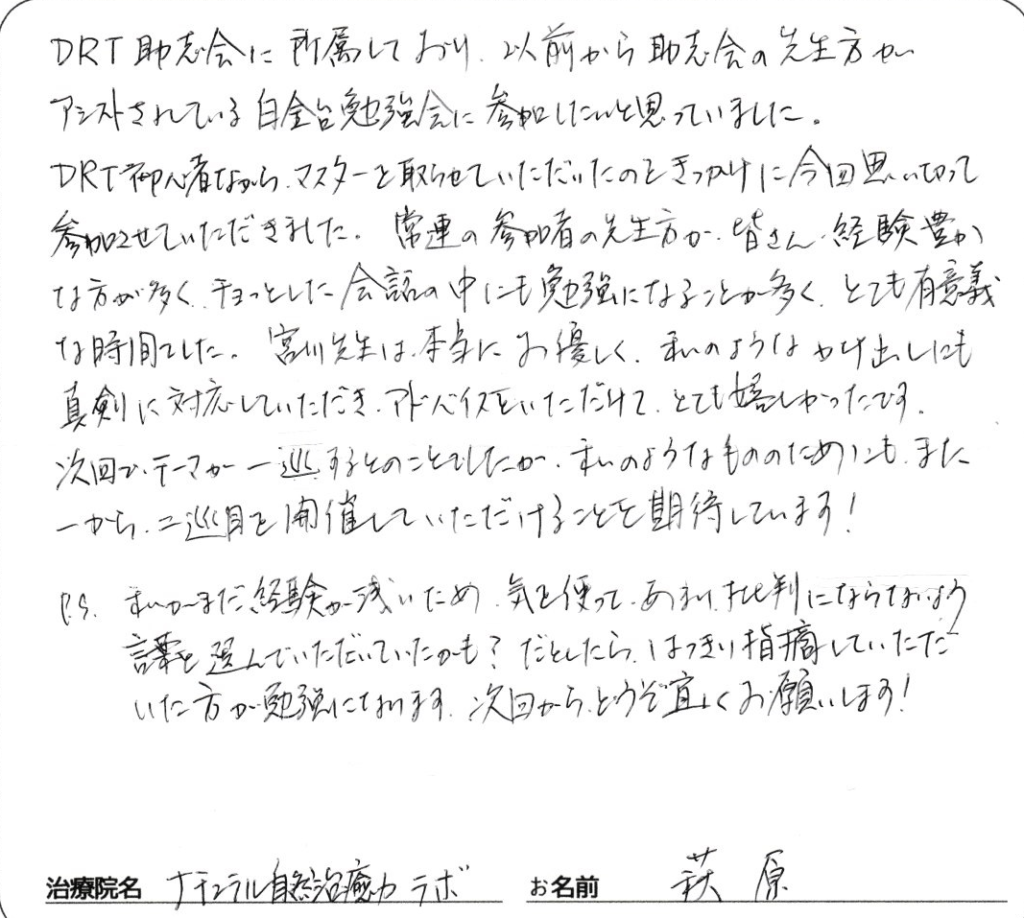 DRT助志会に所属しており、以前から助志会の先生方が
アシストされている白金台勉強会に参加したいと思っていました。
DRT初心者ながら、マスターを取らせていただいたのをきっかけに今回思い切って
参加させていただきました。常連の参加者の先生方が、皆さん、経験豊か
な方が多く、チョっとした会話の中にも勉強になることが多く、とても有意義
な時間でした。宮川先生は、本当にお優しく、私のようなかけ出しにも
真剣に対応していただき、アドバイスをいただけて、とても嬉しかったです。
次回で、テーマが一巡するとのことでしたが、私のようなもののためにも、また
一から、二巡目を開催していただけることを期待しています!
P.S. 私がまだ、経験が浅いため、気を使って、あまり、批判にならないよう
言葉を選んでいただいていたかも?だとしたら、はっきり指摘していただ
いた方が勉強になります。次回から、どうぞ宜しくお願いします!
治療院名 ナチュラル自然治癒力ラボ お名前 萩原